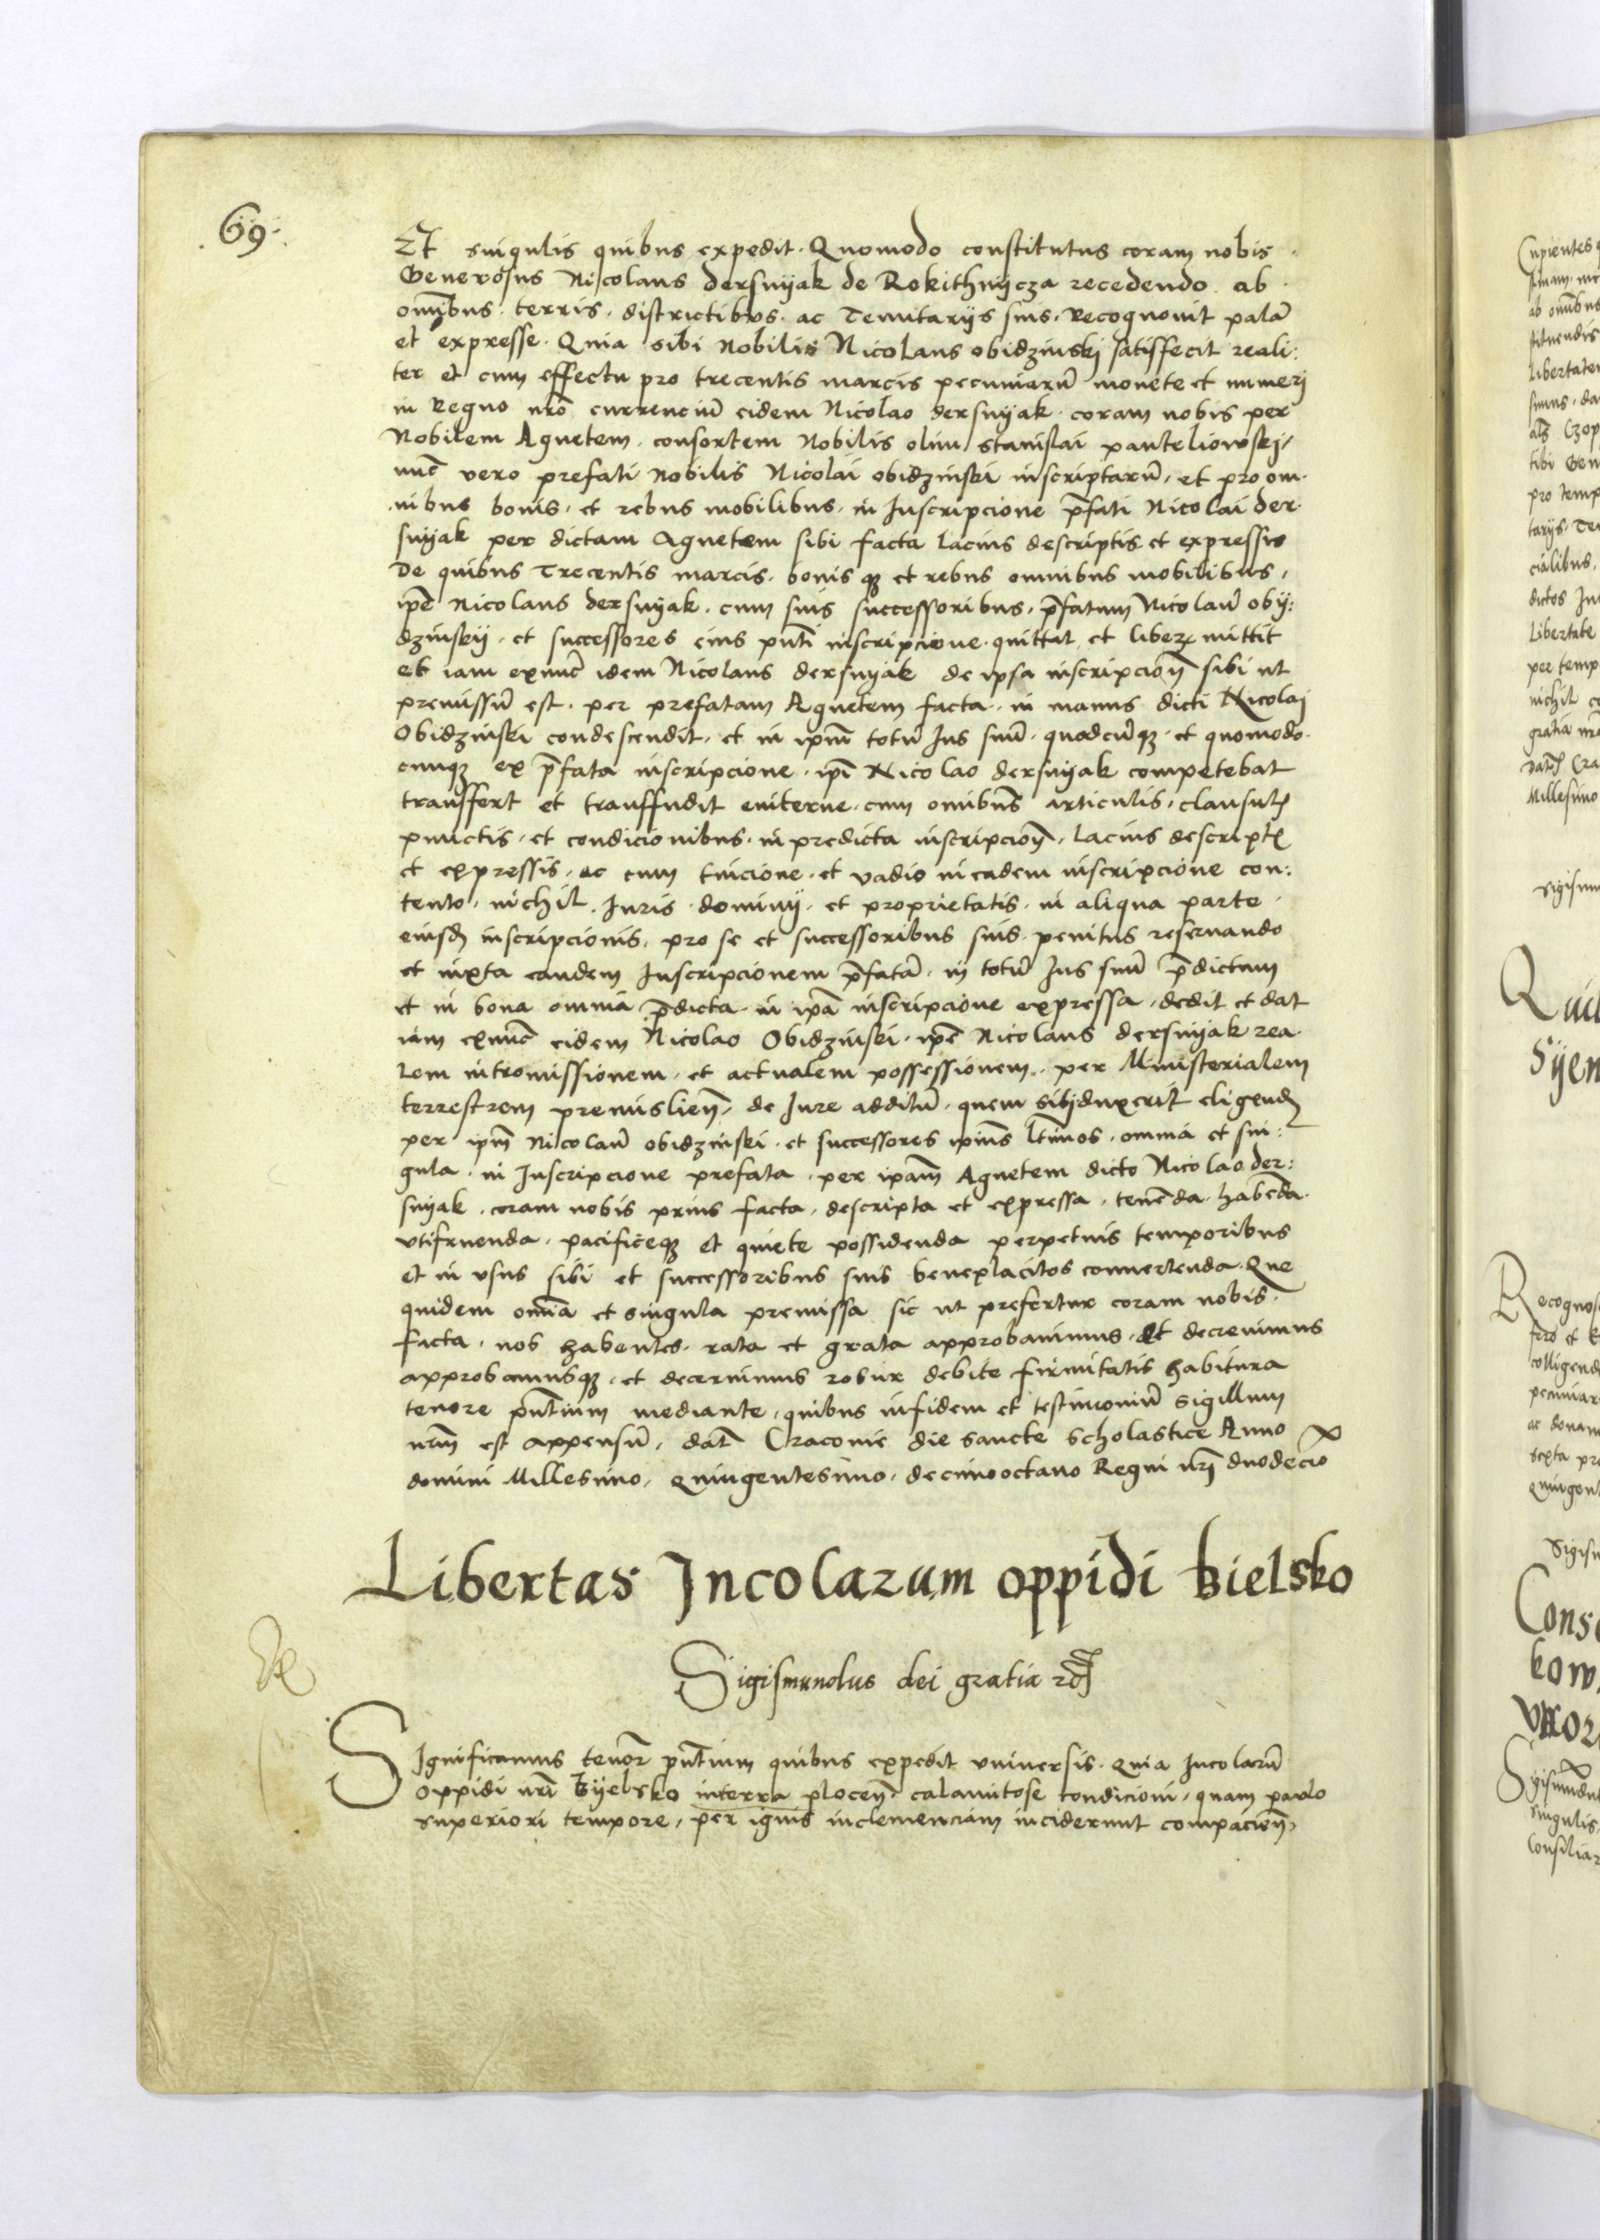 .69.
Et singulis quibus expedit. Quomodo constitutus coram nobis.
Generosus Nicolaus dersnyak de Rokithnycza recedendo ab
omībus. terris. districtibus. ac Tenutarijs suis. Recognovit palā
et expresse. Quia sibi Nobilis Nicolaus obidzinskj satisfecit reali:
ter et cum effectu pro trecentis marcis pecuniarū monete et numerj
in Regno nr̄o currenciū eidem Nicolao dersnyak. coram nobis per
Nobilem Agnetem. consortem Nobilis olim stanislai panteliowskj/
nuc̄ vero prefati Nobilis Nicolai obidzinski inscriptarū, et pro om-
nibus bonis. et rebus mobilibus. in Inscripcione p̄fati Nicolai der-
snyak per dictam Agnetem sibi facta lacius descriptis et expressis
De quibus Trecentis marcis. bonis qz et rebus omnibus mobilibus,
ip̄e Nicolaus dersnyak. cum suis successoribus, p̄fatum Nicolaū oby:
dzinskij. et successores eius pn̄ti inscripcione. quittat et liberꝝ mittit
et iam exnuc̄ idem Nicolaus dersnyak de ipsa inscripcion̄ sibi ut
premissū est. per prefatam Agnetem facta. in manus dicti Nicolaj
Obidzinski condescendit. et in ipm̄ totū Jus suū. quodcūqz. et quomodo-
cunqz ex p̄fata inscripcione. ip̄i Nicolao dersnyak competebat
transfert et transfudit eviterne. cum omībus articulis. clausul̄
punctis. et condicionibus. in predicta inscripcion̄. lacius descript̄
et expressis. ac cum tuicione. et vadio in eadem inscripcione con:
tento. nichil. Juris dominij. et proprietatis. in aliqua parte.
eiusd̄ inscripcionis. pro se et successoribus suis. penitus reservando
et iuxta eandem Inscripcionem p̄fatā. in totū Jus suū p̄dictum
et in bona omnia p̄dicta. in ip̄a inscripcione expressa. dedit et dat
iam exnuc̄ eidem Nicolao Obidzinski. ip̄e Nicolaus dersnyak rea
lem intromissionem. et actualem possessionem. per Ministerialem
terrestrem premislien̄. de Jure additū. quem sibi duxerit eligend̄
per ipm̄ Nicolaū obidzinski. et successores ipius l̄timos. omnia et sin:
gula. in Inscripcione prefata. per ipam̄ Agnetem dicto Nicolao der:
snyak. coram nobis prius facta. descripta et expressa. tenēda. habēda.
utifruenda. pacificeqz et quiete possidenda perpetuis temporibus
et in usus sibi et successoribus suis beneplacitos convertenda. Que
quidem omīa et singula premissa sic ut prefertur coram nobis.
facta. nos habentes. rata et grata approbavimus. et decrevimus
approbamusqz. et decernimus robur debite firmitatis habitura
tenore pn̄tium mediante. quibus infidem et testimoniū sigillum
nr̄m est appensū. dat̄ Cracovie die sancte Scholastice Anno
domini Millesimo. Quingentesimo. decimooctavo Regni nr̄i duodecīo
Libertas Incolarum oppidi Bielsko
Sigismundus dei gratia
Significamus tenor̄ pn̄tium quibus expedit universis. quia Incolarū
oppidi nr̄i Byelsko interra plocen̄. calamitose condicioni, quam paulo
superiori tempore, per ignis inclemenciam inciderunt compacien̄.